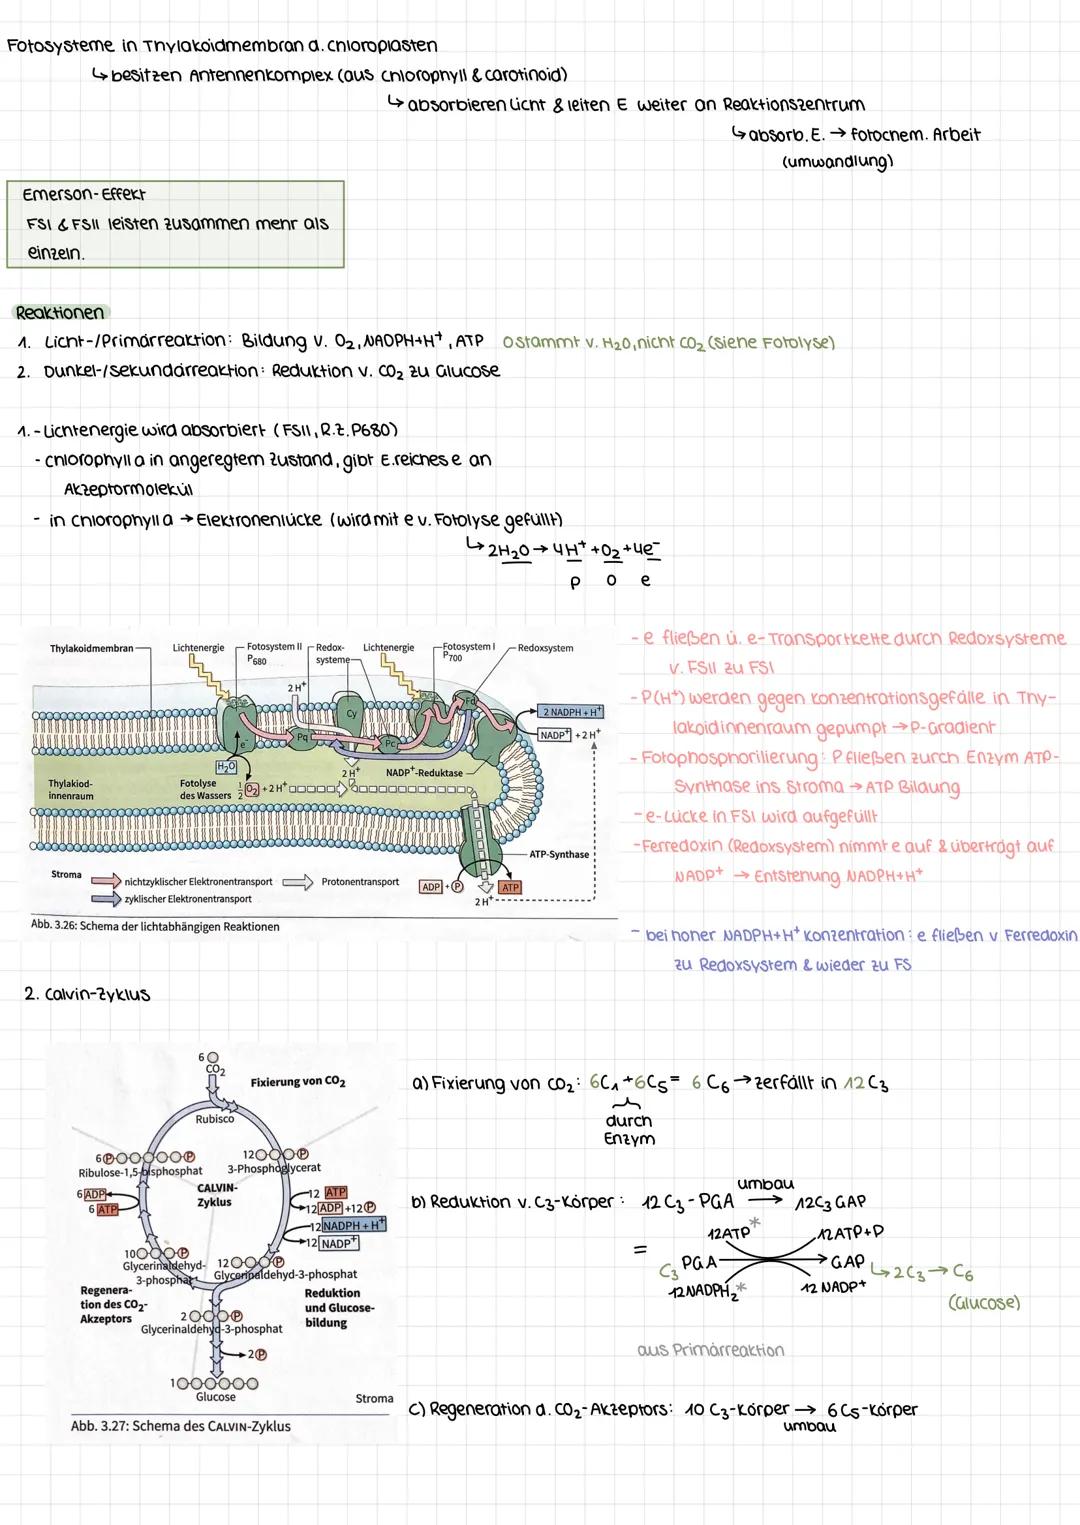 Fotosysteme in Thylakoidmembran d. Chloroplasten
↳ besitzen Antennenkomplex (aus Chlorophyll & Carotinoid)
↳ absorbieren Licht & leiten E weiter an Reaktionszentrum
↳ absorb. E. → fotochem. Arbeit
(umwandlung)
Emerson-Effekt
FSI & FSII leisten zusammen mehr als
einzeln.
Reaktionen
1. Licht-/Primärreaktion: Bildung v. O₂, NADPH+H⁺, ATP O stammt v. H₂O, nicht CO₂ (siehe Fotolyse)
2. Dunkel-/Sekundärreaktion: Reduktion v. CO₂ zu Glucose
1. - Lichtenergie wird absorbiert (FSII, R.Z. P680)
- Chlorophyll a in angeregtem Zustand, gibt E.reiches e an
Akzeptormolekül
- in Chlorophyll a → Elektronenlücke (wird mit e v. Fotolyse gefüllt)
↳ 2H₂O → 4H⁺ + O₂ + 4e⁻
P O e
Thylakoidmembran
Lichtenergie
Fotosystem II
P680
Redox-
systeme
Lichtenergie
Fotosystem I
P700
Redoxsystem
2 H⁺
Cy
Fd
Pq
Pc
e⁻
2 NADPH + H⁺
NADP⁺ + 2 H⁺
H₂O
Thylakiod-
innenraum
Fotolyse
des Wassers
½ O₂ + 2 H⁺
2 H⁺
NADP⁺-Reduktase
ATP-Synthase
Stroma
nichtzyklischer Elektronentransport
Protonentransport
zyklischer Elektronentransport
ADP + P
ATP
2 H⁺
Abb. 3.26: Schema der lichtabhängigen Reaktionen
- e fließen ü. e-Transportkette durch Redoxsysteme
v. FSII zu FSI
- P(H⁺) werden gegen Konzentrationsgefälle in Thy-
lakoidinnenraum gepumpt → P-Gradient
- Fotophosphorilierung: P fließen zurch Enzym ATP-
Synthase ins Stroma → ATP Bildung
- e-Lücke in FSI wird aufgefüllt
- Ferredoxin (Redoxsystem) nimmt e auf & überträgt auf
NADP⁺ → Entstehung NADPH+H⁺
- bei hoher NADPH+H⁺ Konzentration: e fließen v Ferredoxin
zu Redoxsystem & wieder zu FS
2. Calvin-Zyklus
6
CO₂
Fixierung von CO₂
Rubisco
6 P P
Ribulose-1,5-bisphosphat
12 P
3-Phosphoglycerat
CALVIN-
Zyklus
6 ADP
6 ATP
12 ATP
12 ADP + 12 P
12 NADPH + H⁺
12 NADP⁺
10 P
Glycerinaldehyd-
3-phosphat
12 P
Glycerinaldehyd-3-phosphat
Regenera-
tion des CO₂-
Akzeptors
Reduktion
und Glucose-
bildung
2 P
Glycerinaldehyd-3-phosphat
2 P
1
Glucose
Stroma
Abb. 3.27: Schema des CALVIN-Zyklus
a) Fixierung von CO₂: 6C₁ + 6C₅ = 6 C₆ → zerfällt in 12 C₃
durch
Enzym
b) Reduktion v. C₃-Körper: 12 C₃-PGA → 12 C₃ GAP
umbau
12ATP* 12ATP+P
= C₃ PGA → GAP ↳ 2C₃ → C₆
12NADPH₂* 12 NADP⁺
(Glucose)
aus Primärreaktion
c) Regeneration d. CO₂-Akzeptors: 10 C₃-Körper → 6 C₅-Körper
umbau